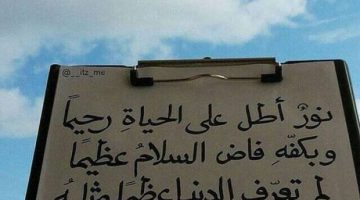 @__itz_me
نورٌ أطل على الحياةِ رحيمًا
وبكفّهِ فاض السلامُ عظيمًا
لم تعرف الدنيا عظيمًا مثلهُ